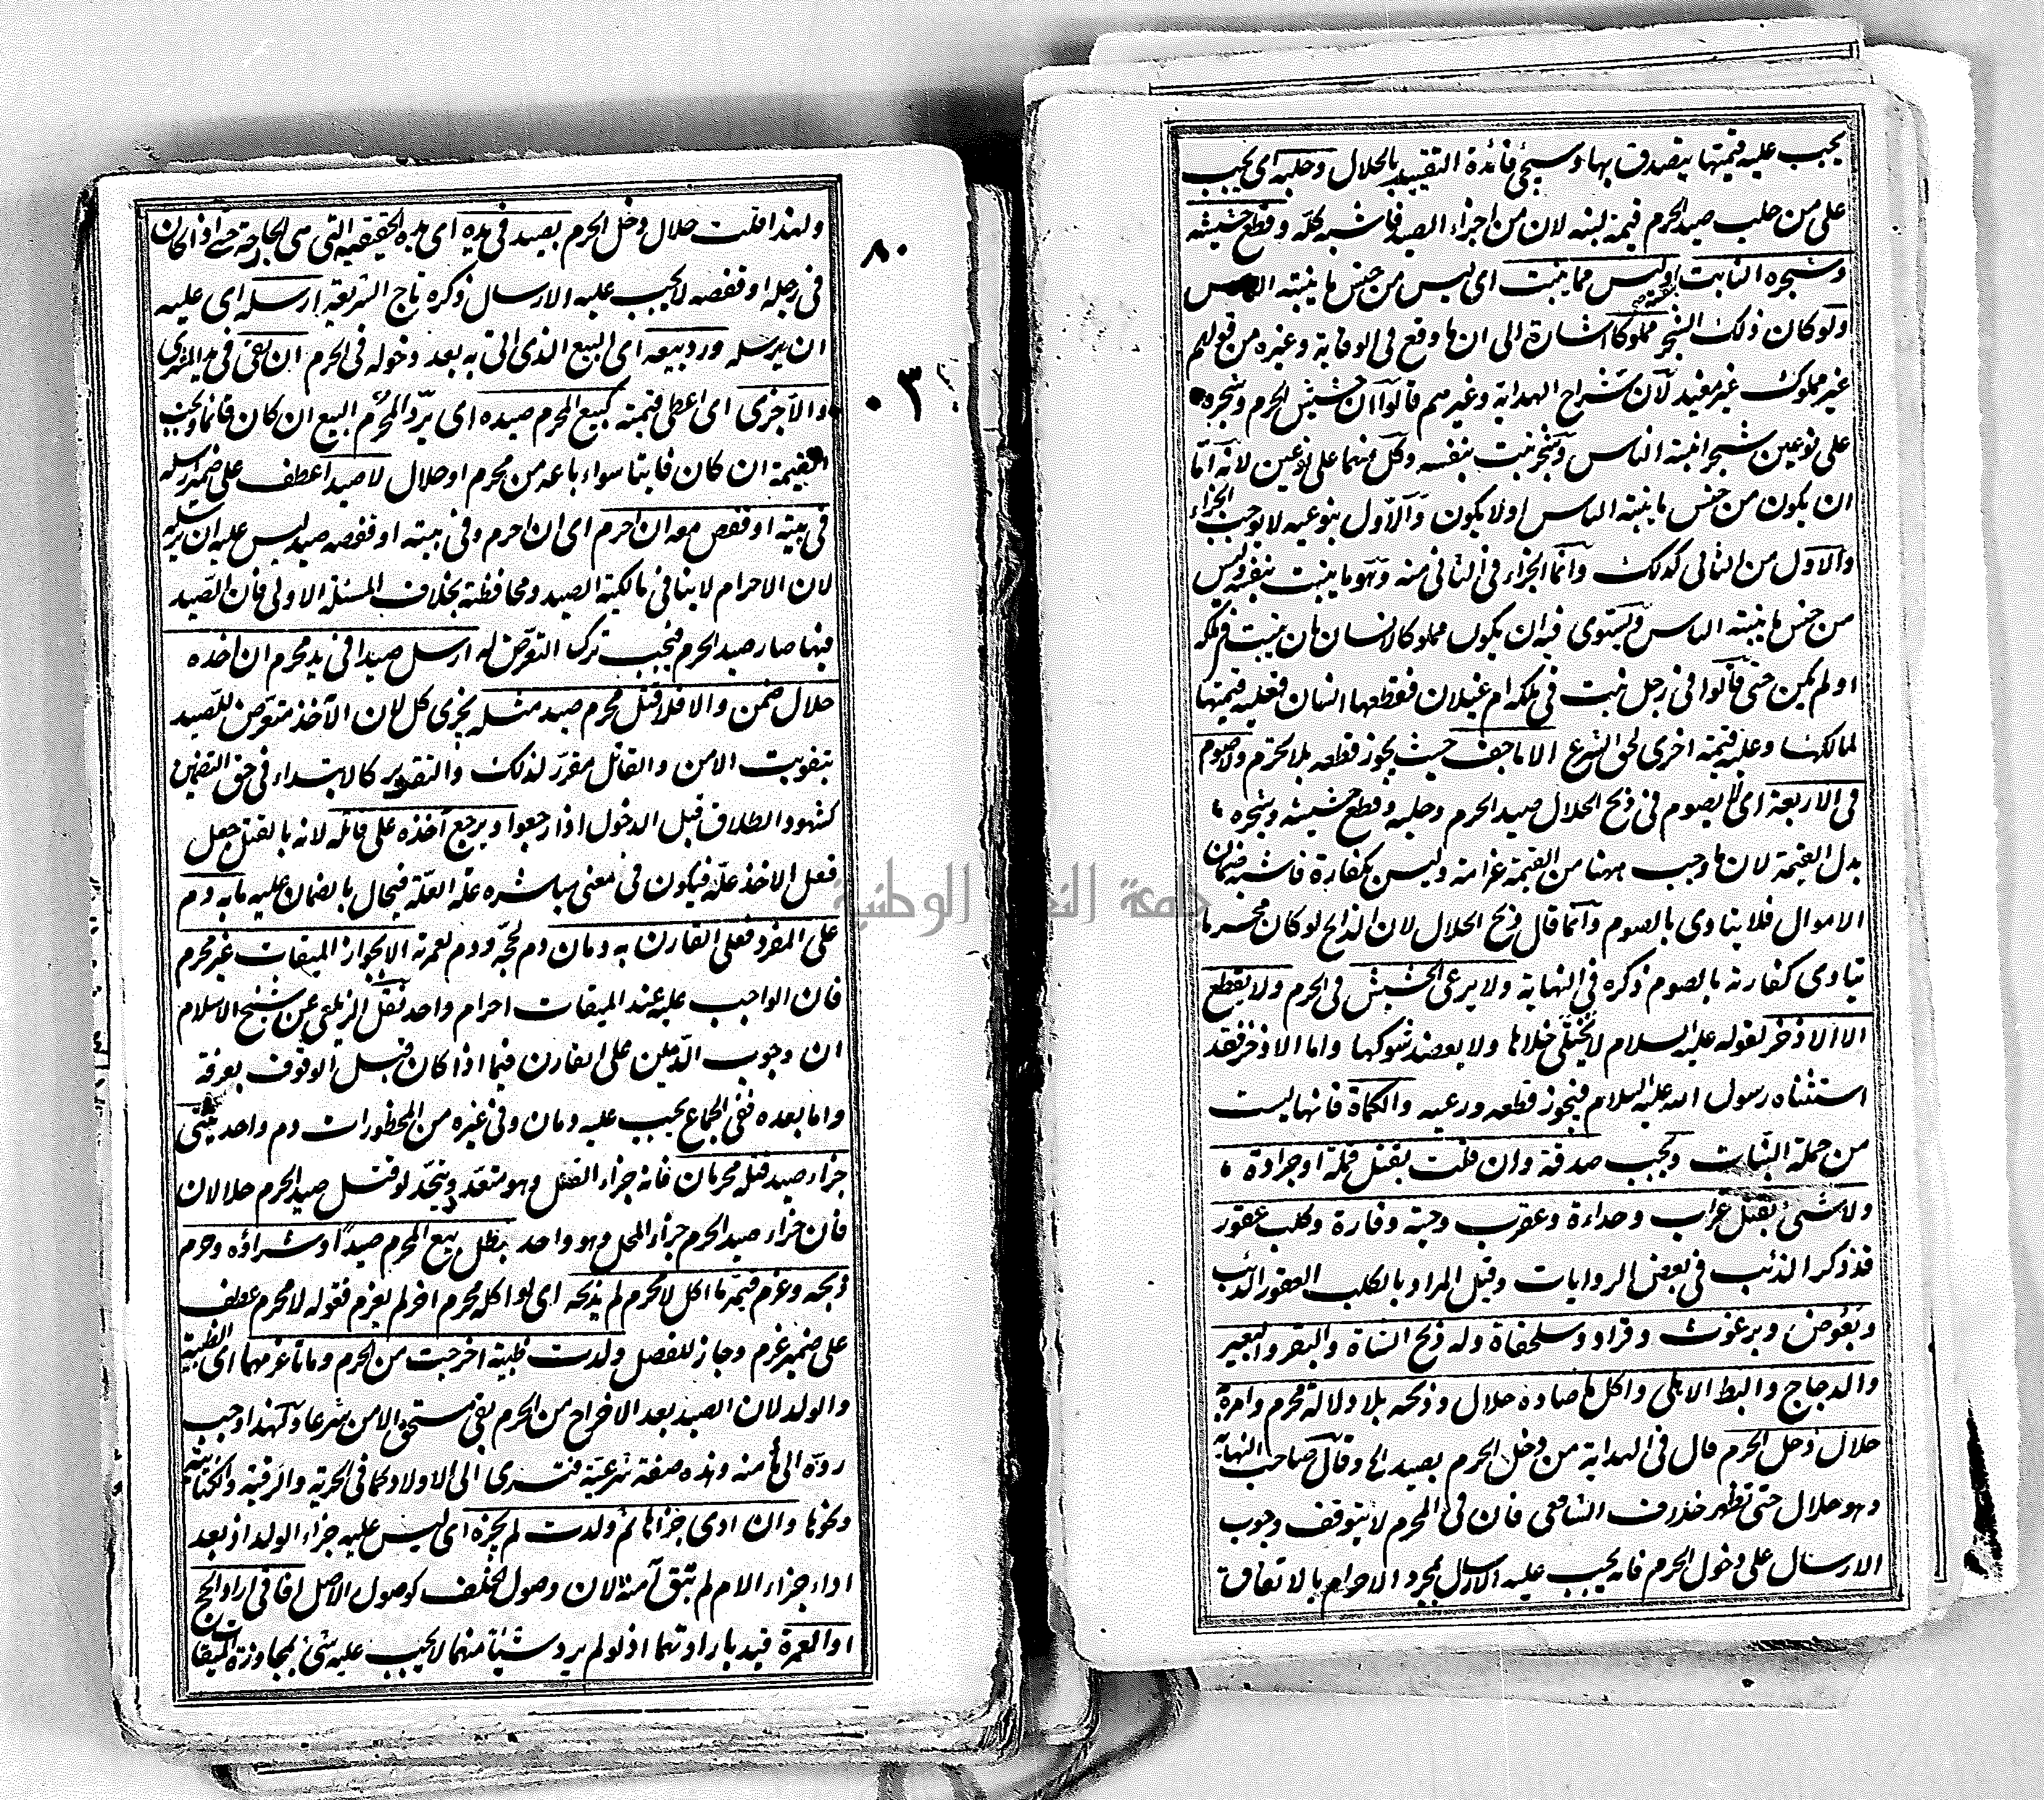 يجب عليه قيمتها يتصدق بها وسيجئ فائدة التقييد بالحلال وحلبه اى يجب
على من حلب صيد الحرم قيمة لبنه لان من اجزاء الصيد فاشبه كله وقطع حشيشه
وشجره النابت بنفسه وليس مما ينبت اى ليس من جنس ما ينبته الناس
ولو كان ذلك الشجر مملوكا اشارة الى ان ما وقع فى الوقاية وغيره من قولهم
غير مملوك غير مفيد لان شراح الهداية وغيرهم قالوا ان حشيش الحرم وشجره
على نوعين شجر انبته الناس وشجر نبت بنفسه وكل منهما على نوعين لانه اما
ان يكون من جنس ما ينبته الناس او لا يكون والاول بنوعيه لا يوجب الجزاء
والاول من الثانى كذلك وانما الجزاء فى الثانى منه وهو ما ينبت بنفسه وليس
من جنس ما ينبته الناس ويستوى فيه ان يكون مملوكا لانسان بان ينبت فى ملكه
او لم يكن حتى قالوا فى رجل نبت فى ملكه ام غيلان فقطعها انسان فعليه قيمتها
لمالكها وعليه قيمة اخرى لحق الشرع الا ما جف حيث يجوز قطعه بلا محترم ولا صوم
فى الاربعة اى لا يصوم فى ذبح الحلال صيد الحرم وحلبه وقطع حشيشه وشجره
بدل القيمة لان ما وجب ههنا من القيمة غرامة وليس بكفارة فاشبه ضمان
الاموال فلا يتادى بالصوم وانما قال ذبح الحلال لان الذابح لو كان محرما
تتادى كفارته بالصوم ذكره فى النهاية ولا يرعى الحشيش فى الحرم ولا يقطع
الا الاذخر لقوله عليه السلام لا يختلى خلاها ولا يعضد شوكها واما الاذخر فقد
استثناه رسول الله عليه السلام فيجوز قطعه ورعيه والكماة فانها ليست
من جملة النبات وتجب صدقة وان قلت بقتل قملة او جرادة
ولا شئ بقتل غراب وحداءة وعقرب وحية وفارة وكلب عقور
قد ذكر الذئب فى بعض الروايات وقيل المراد بالكلب العقور الذئب
وبعوض وبرغوث وقراد وسلحفاة وله ذبح الشاة والبقر والبعير
والدجاج والبط الاهلى واكل ما صاده حلال وذبحه بلا دلالة محرم وامره
حلال دخل الحرم قال فى الهداية من دخل الحرم بصيد الخ وقال صاحب النهاية
وهو حلال حتى تظهر خلاف الشافعى فان فى المحرم لا يتوقف وجوب
الارسال على دخول الحرم فانه يجب عليه الارسال بمجرد الاحرام بالاتفاق
٨٠
٣
ولهذا قلت حلال دخل الحرم بصيد فى يده اى يده الحقيقية التى هى الجارحة حتى اذا كان
فى رحله او قفصه لا يجب عليه الارسال ذكره تاج الشريعة ارسله اى عليه
ان يرسله ورد بيعه اى البيع الذى اتى به بعد دخوله فى الحرم ان بقى فى يد المشترى
والا جزى اى اعطى قيمته كبيع المحرم صيده اى يرد المحرم البيع ان كان قائما ويجب
القيمة ان كان فائتا سواء باعه من محرم او حلال لا صيدا عطف على ضمير ارسله
فى بيته او قفص معه ان احرم اى ان احرم وفى بيته او قفصه صيد ليس عليه ان يرسله
لان الاحرام لا ينافى مالكية الصيد ومحافظته بخلاف المسئلة الاولى فان الصيد
فيها صار صيد الحرم فيجب ترك التعرض له ارسل صيدا فى يد محرم ان اخذه
حلال ضمن والا فلا قتل محرم صيد مثله يجزى كل لان الآخذ متعرض للصيد
بتفويت الامن والقاتل مقرر لذلك والتقرير كالابتداء فى حق التضمين
كشهود الطلاق قبل الدخول اذا رجعوا ويرجع آخذه على قاتله لانه بالقتل جعل
فعل الاخذ علة فيكون فى معنى مباشرة علة العلة فيحال بالضمان عليه ما به دم
على المفرد فعلى القارن به دمان دم لحجه ودم لعمرته الا بجواز الميقات غير محرم
فان الواجب عليه عند الميقات احرام واحد نقل الزيلعى عن شيخ الاسلام
ان وجوب الدمين على القارن فيما اذا كان قبل الوقوف بعرفة
واما بعده ففى الجماع يجب عليه دمان وفى غيره من المحظورات دم واحد يثنى
جزاء صيد قتله محرمان فانه جزاء الفعل وهو متعدد ويتحد لو قتل صيد الحرم حلالان
فان جزاء صيد الحرم جزاء المحل وهو واحد بطل بيع المحرم صيدا وشراؤه وحرم
ذبحه وغرم قيمة ما اكل لا محرم لم يذبحه اى لو اكله محرم اخر لم يغرم فقوله لا محرم عطف
على ضمير غرم وجاز للفصل ولدت ظبية اخرجت من الحرم وماتا غرمهما اى الظبية
والولد لان الصيد بعد الاخراج من الحرم بقى مستحق الامن شرعا ولهذا وجب
رده الى مأمنه وهذه صفة شرعية فتسرى الى الاولاد كما فى الحرية والرقية والكتابة
ونحوها وان ادى جزاها ثم ولدت لم يجزه اى ليس عليه جزاء الولد اذ بعد
اداء جزاء الام لم تبق آمنة لان وصول الخلف كوصول الاصل افاقى اراد الحج
او العمرة قيد بارادتهما اذ لو لم يرد شيئا منهما لا يجب عليه شئ بمجاوزة الميقات
جامعة الوطنية